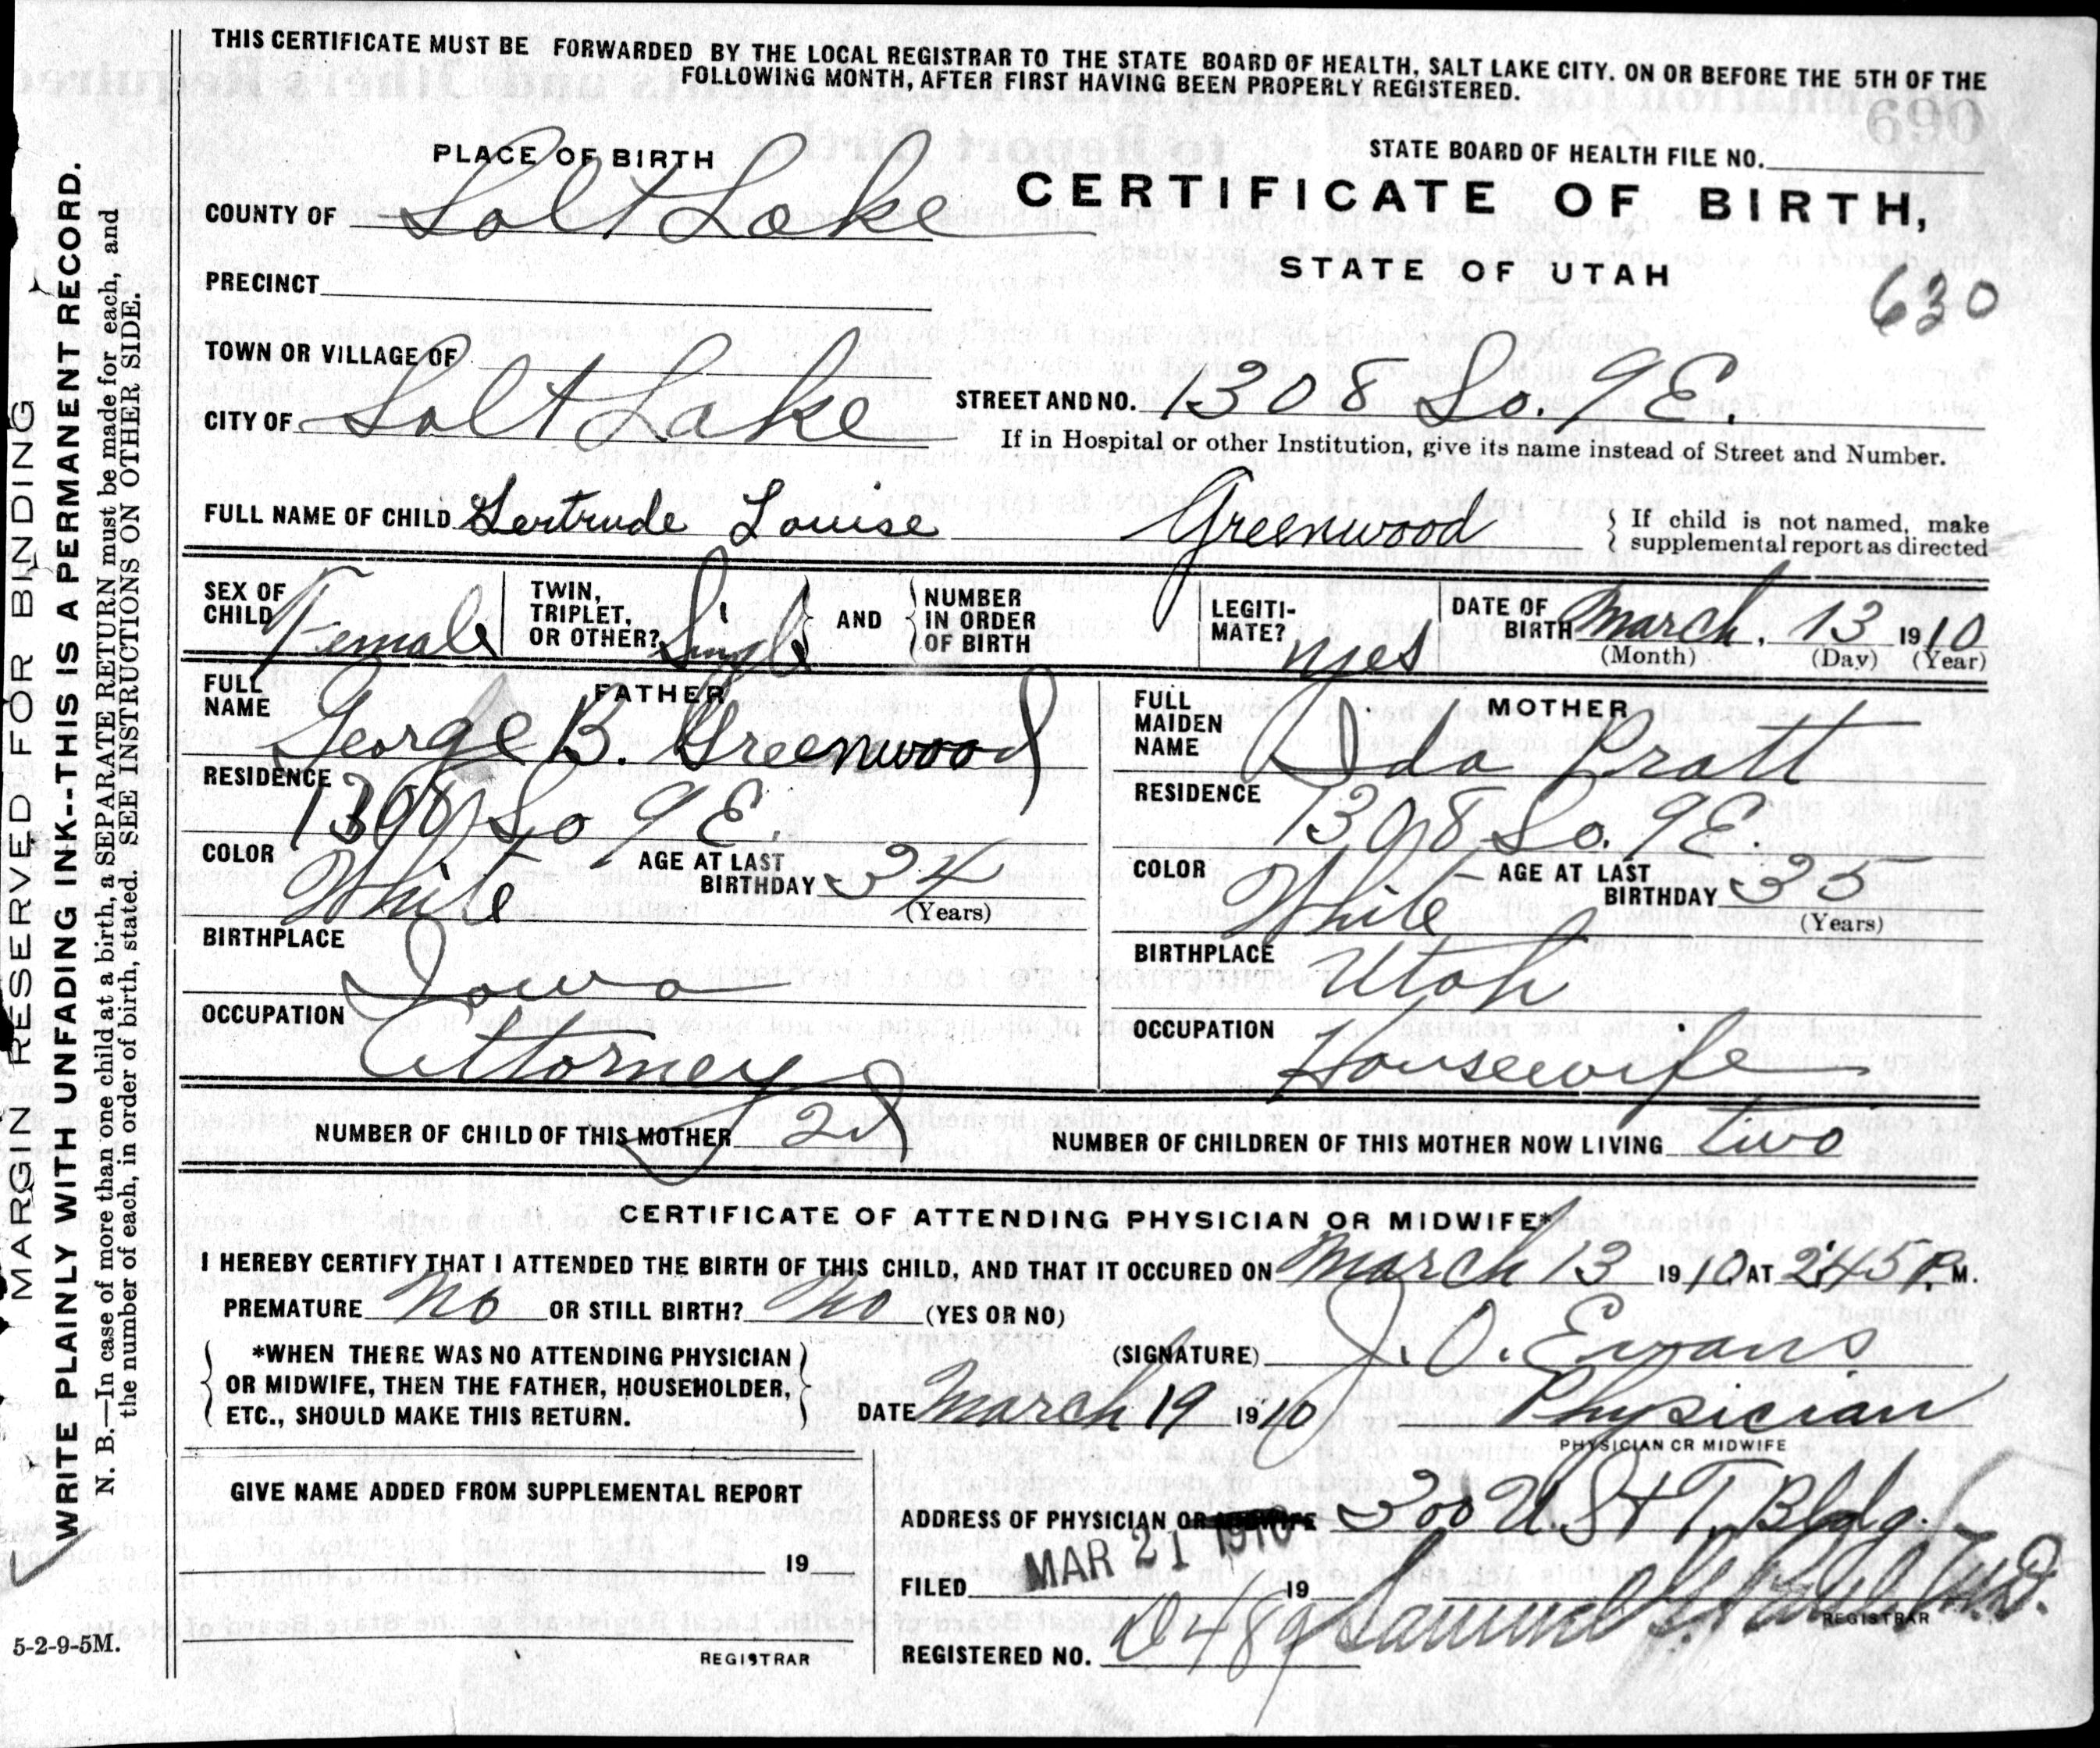 THIS CERTIFICATE MUST BE FORWARDED BY THE LOCAL REGISTRAR TO THE STATE BOARD OF HEALTH, SALT LAKE CITY. ON OR BEFORE THE 5TH OF THE
FOLLOWING MONTH, AFTER FIRST HAVING BEEN PROPERLY REGISTERED.
PLACE OF BIRTH
STATE BOARD OF HEALTH FILE NO.
COUNTY OF Salt Lake
CERTIFICATE OF BIRTH,
STATE OF UTAH
630
PRECINCT
TOWN OR VILLAGE OF
CITY OF Salt Lake
STREET AND NO. 1308 So. 9 E.
If in Hospital or other Institution, give its name instead of Street and Number.
FULL NAME OF CHILD Gertrude Louise Greenwood
If child is not named, make
supplemental report as directed
SEX OF CHILD Female
TWIN, TRIPLET, OR OTHER? Single
AND
NUMBER IN ORDER OF BIRTH
LEGITI-MATE? yes
DATE OF BIRTH March, 13 1910
(Month) (Day) (Year)
FATHER
FULL NAME George B. Greenwood
RESIDENCE 1308 So 9 E.
COLOR White
AGE AT LAST BIRTHDAY 34
(Years)
BIRTHPLACE Iowa
OCCUPATION Attorney
MOTHER
FULL MAIDEN NAME Ida Pratt
RESIDENCE 1308 So. 9 E.
COLOR White
AGE AT LAST BIRTHDAY 35
(Years)
BIRTHPLACE Utah
OCCUPATION Housewife
NUMBER OF CHILD OF THIS MOTHER 2d
NUMBER OF CHILDREN OF THIS MOTHER NOW LIVING two
CERTIFICATE OF ATTENDING PHYSICIAN OR MIDWIFE*
I HEREBY CERTIFY THAT I ATTENDED THE BIRTH OF THIS CHILD, AND THAT IT OCCURED ON March 13 1910 AT 2:45 P. M.
PREMATURE No OR STILL BIRTH? No (YES OR NO)
*WHEN THERE WAS NO ATTENDING PHYSICIAN
OR MIDWIFE, THEN THE FATHER, HOUSEHOLDER,
ETC., SHOULD MAKE THIS RETURN.
(SIGNATURE) J. O. Evans
DATE March 19 1910
Physician
PHYSICIAN OR MIDWIFE
GIVE NAME ADDED FROM SUPPLEMENTAL REPORT
19
REGISTRAR
ADDRESS OF PHYSICIAN OR MIDWIFE 200 U. S & T. Bldg.
FILED MAR 21 1910 19
REGISTRAR
REGISTERED NO. 489 Samuel G. M.D.
MARGIN RESERVED FOR BINDING
WRITE PLAINLY WITH UNFADING INK--THIS IS A PERMANENT RECORD.
N. B.—In case of more than one child at a birth, a SEPARATE RETURN must be made for each, and
the number of each, in order of birth, stated. SEE INSTRUCTIONS ON OTHER SIDE.
5-2-9-5M.